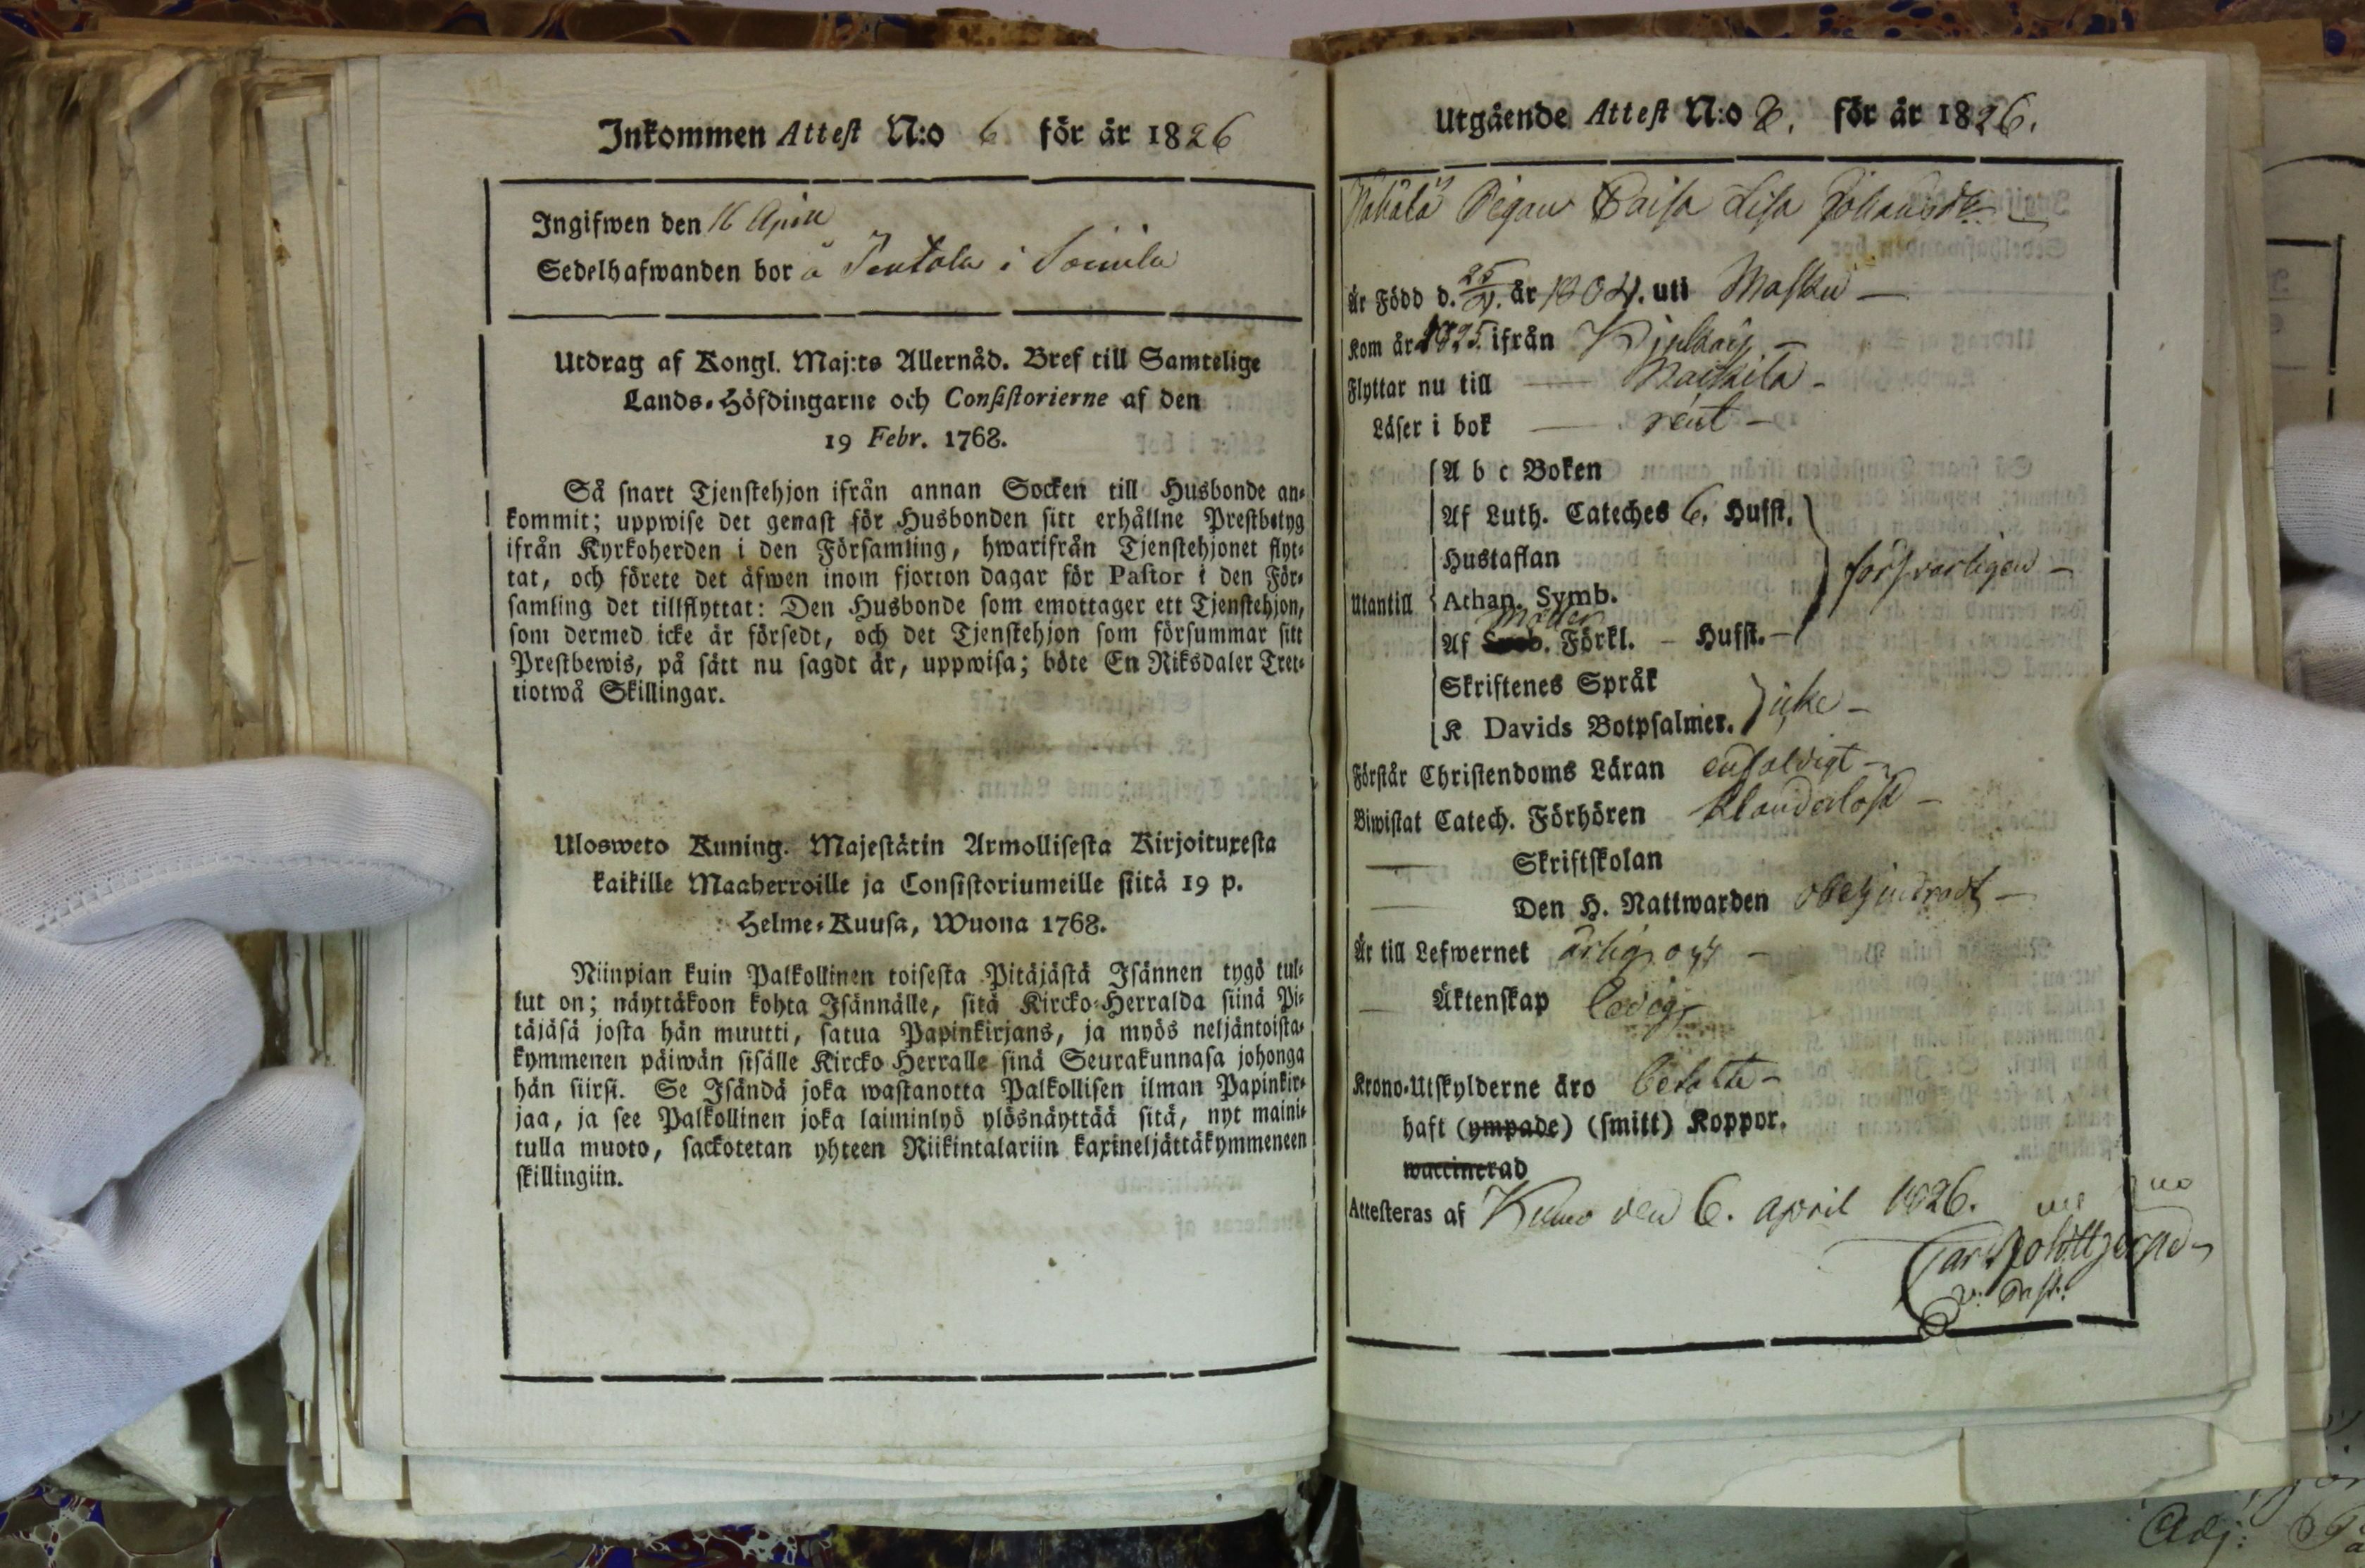 Inkommen Attest N:o 6 för år 1826
Ingifwen den 16 April
Sedelhafwanden bor å i
Utdrag af Kongl. Maj:ts Allernåd. Bref till Samtelige
Lands-Höfdingarne och Consistorierne af den
19 Febr. 1768.
Så snart Tjenstehjon ifrån annan Socken till Husbonde an-
kommit; uppwise det genast för Husbonden sitt erhållne Prestbetyg
ifrån Kyrkoherden i den Församling, hwarifrån Tjenstehjonet flyt-
tat, och förete det äfwen inom fjorton dagar för Pastor i den För-
samling det tillflyttat: Den Husbonde som emottager ett Tjenstehjon,
som dermed icke är försedt, och det Tjenstehjon som försummar sitt
Prestbewis, på sätt nu sagdt är, uppwisa; böte En Riksdaler Tret-
tiotwå Skillingar.
Ulosweto Kuning. Majestätin Armollisesta Kirjoituxesta
kaikille Maaherroille ja Consistoriumeille siitä 19 p.
Helme-Kuusa, Wuona 1768.
Niinpian kuin Palkollinen toisesta Pitäjästä Isännen tygö tul-
lut on; näyttäkoon kohta Isännälle, sitä Kircko-Herralda siinä Pi-
täjäsä josta hän muutti, satua Papinkirjans, ja myös neljäntoista-
kymmenen päiwän sisälle Kircko Herralle sinä Seurakunnasa johonga
hän siirsi. Se Isändä joka wastanotta Palkollisen ilman Papinkir-
jaa, ja see Palkollinen joka laiminlyö ylösnäyttää sitä, nyt maini-
tulla muoto, sackotetan yhteen Riikintalariin kaxineljättäkymmeneen
skillingiin.
Utgående Attest N:o 8. för år 1826.
Pigan Caisa Lisa Johansdr
Är Född d. 25 år 1804. uti Masku
Kom år 1825. ifrån
Flyttar nu till
Läser i bok rent
A b c Boken
Af Luth. Cateches 6. Hufst.
Hustaflan försvarligen
Utantill Athan. Symb.
Möller
Af Förkl. - Hufst.
Skriftenes Språk
K Davids Botpsalmer. icke
Förstår Christendoms Läran enfaldigt
Biwistat Catech. Förhören klanderlöst
Skriftskolan
Den H. Nattwarden obehindradt
Är till Lefwernet ärlig
Äktenskap Ledig
Krono-Utskylderne äro betalte
haft (ympade) (smitt) Koppor.
waccinerad
Attesteras af Kumo den 6. april 1826.
Carl
Adj: